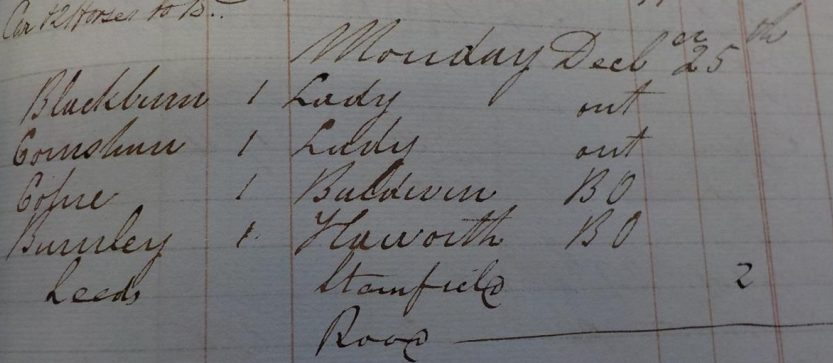 Car & 2 Horses to B..
Monday Decber 25th
Blackburn 1 Lady out
1 Lady out
Colne 1 Baldwin BO
Burnley 1 Haworth BO
Leeds Stansfield 2
Road